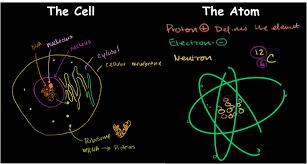 The Cell
DNA
nucleolus
nucleus
cytosol
cellular membrane
Ribosome
mRNA → Proteins
The Atom
Proton + Defines the element
Electron -
Neutron
12
6
C